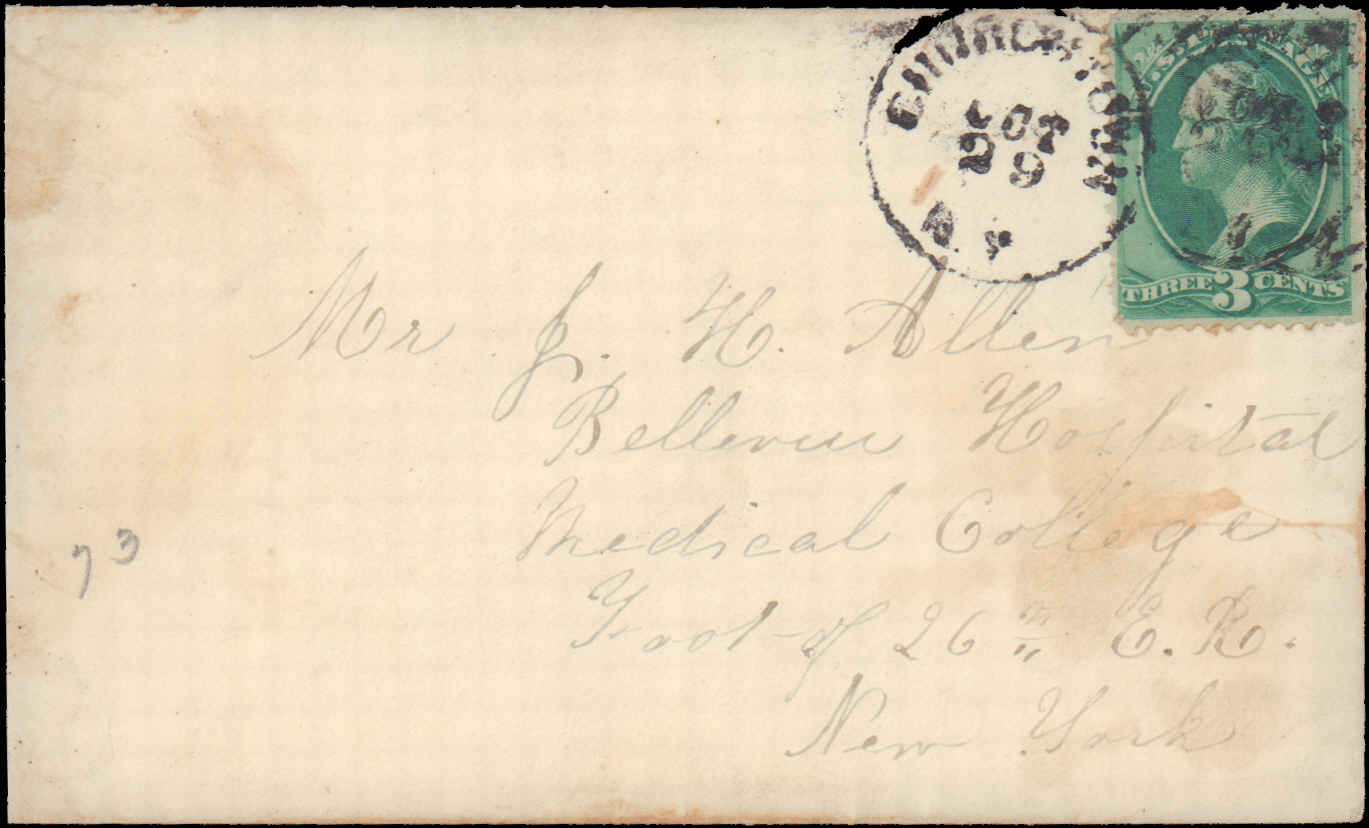 CHURCHTOWN
OCT
29
N.Y.
U.S. POSTAGE
THREE 3 CENTS
Mr J. H. Allen
Bellevue Hospital
Medical College
Foot of 26th E. R.
New York
73